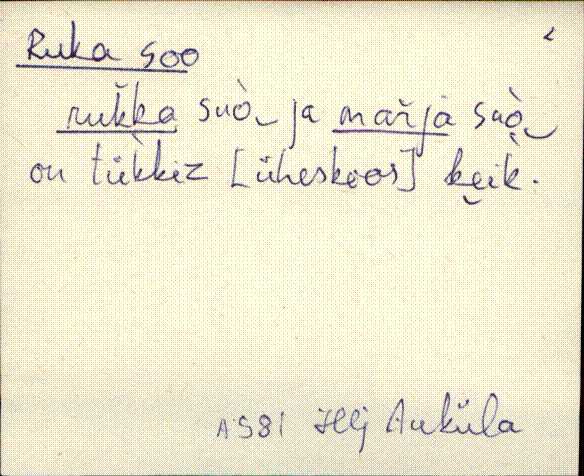 2
Ruka soo
rukka suò ja maŕja suò
on tükkiz [üheskoos] keik.
AS81 Hlj Auküla